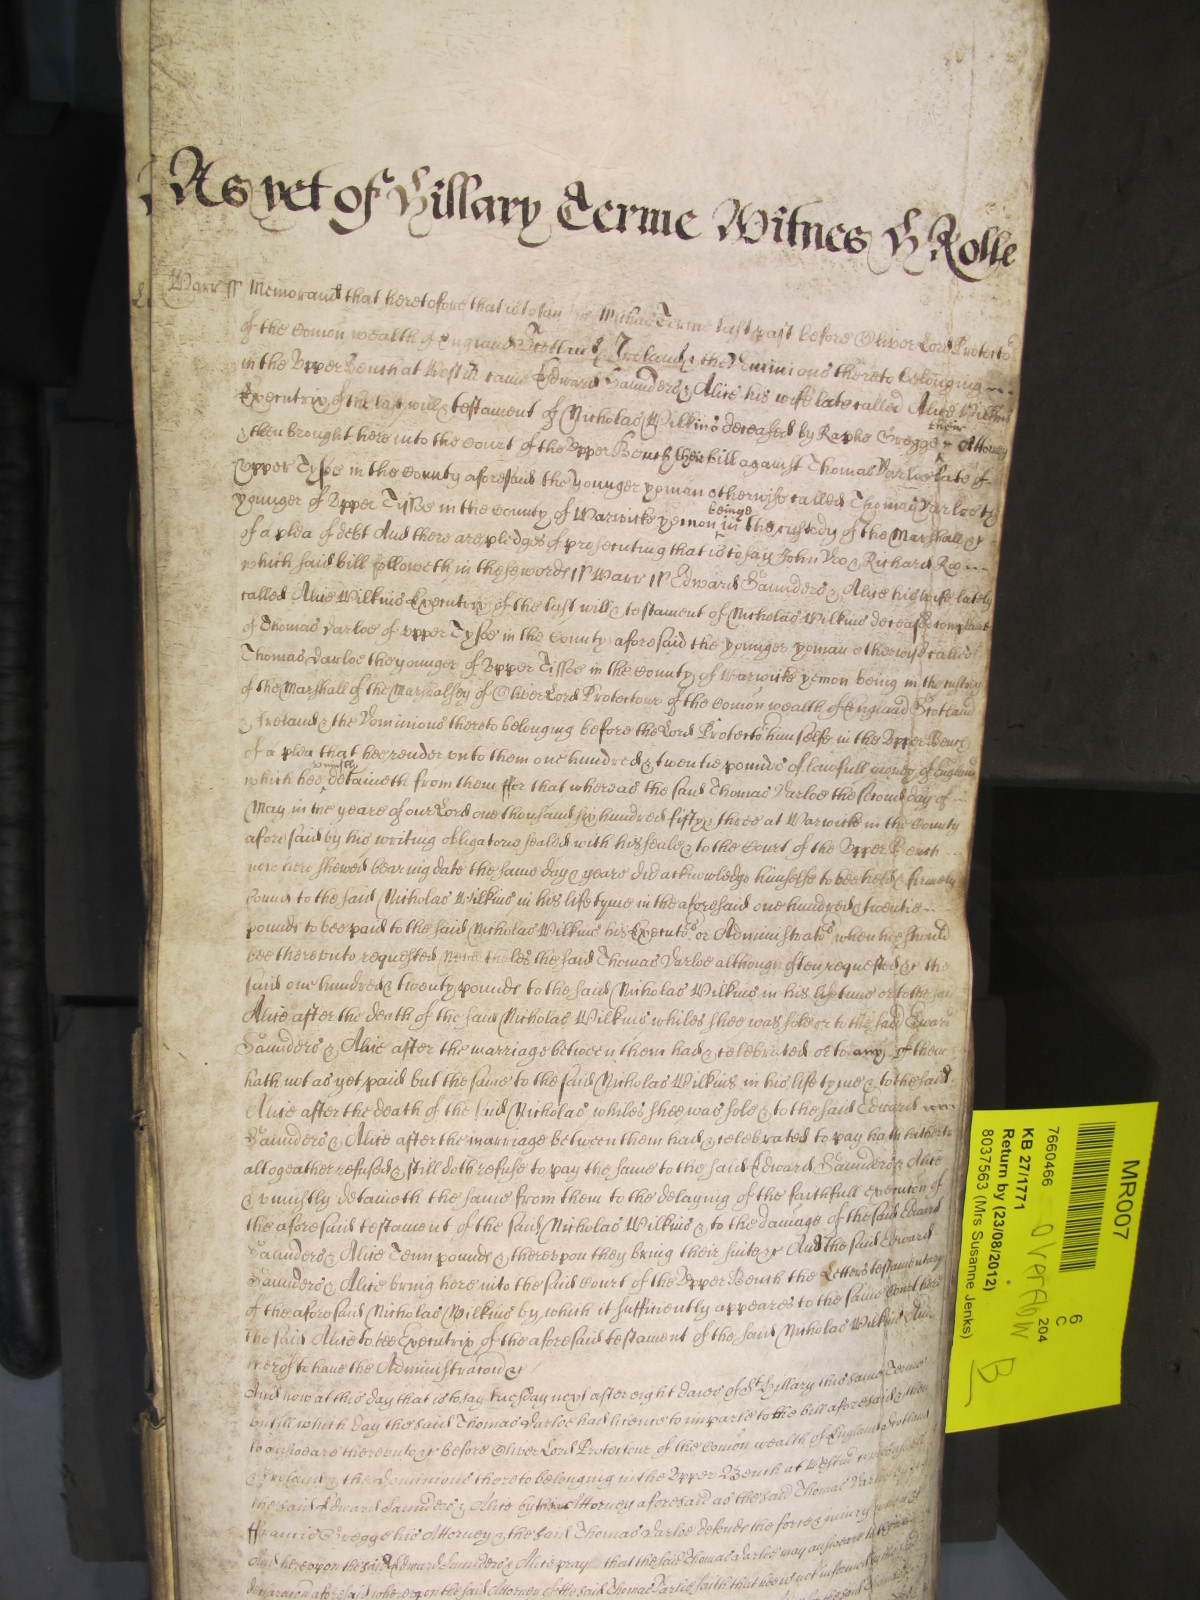 As yet of Hillary Terme Witnes H Rolle
Warr ss Memorand that heretofore that is to say in Michas Terme last past before Oliver Lord Protector
of the Comon wealth of England Scotland & Ireland & the Dominions thereto belonging
in the Upper Bench at Westm came Edward Saunders & Alice his wife late called Alice Wilkins
Executrix of the last will & testament of Nicholas Wilkins deceased by Raphe Gregge their Attorney
& then brought here into the Court of the Upper Bench their bill against Thomas Varloe late of
Upper Tysoe in the County aforesaid the younger yoman otherwise called Thomas Varloe the
younger of Upper Tissoe in the County of Warwicke yemon beinge in the custody of the Marshall &c
of a plea of debt And there are pledges of prosecuting that is to say John Doo & Richard Roo
which said bill followeth in these words ss Warr ss Edward Saunders & Alice his wife lately
called Alice Wilkins Executrix of the last will & testament of Nicholas Wilkins deceased complaine
of Thomas Varloe of Upper Tysoe in the County aforesaid the younger yoman otherwise called
Thomas Varloe the younger of Upper Tissoe in the County of Warwicke yemon being in the custody
of the Marshall of the Marshalsey of Oliver Lord Protectour of the Comon wealth of England Scotland
& Ireland & the Dominions thereto belonging before the Lord Protector himselfe in the Upper Bench
of a plea that hee render unto them one hundred & twentie pounds of lawfull money of England
which hee uniustly detaineth from them ffor that whereas the said Thomas Varloe the second day of
May in the yeare of our Lord one thousand six hundred fifty & three at Warwicke in the County
aforesaid by his writing obligatorie sealed with his seale & to the Court of the Upper Bench
now here shewed bearing date the same day & yeare did acknowledge himselfe to bee held & firmely
bound to the said Nicholas Wilkins in his life tyme in the aforesaid one hundred & twentie
pounds to bee paid to the said Nicholas Wilkins his Executors or Administrators when hee should
bee thereunto requested Nevertheles the said Thomas Varloe although often requested &c the
said one hundred & twenty pounds to the said Nicholas Wilkins in his life time or to the said
Alice after the death of the said Nicholas Wilkins whiles shee was sole or to the said Edward
Saunders & Alice after the marriage betweene them had & celebrated or to any of them
hath not as yet paid but the same to the said Nicholas Wilkins in his life tyme & to the said
Alice after the death of the said Nicholas whiles shee was sole & to the said Edward
Saunders & Alice after the marriage between them had & celebrated to pay hath hitherto
altogeather refused & still doth refuse to pay the same to the said Edward Saunders & Alice
& uniustly detaineth the same from them to the delaying of the faithfull execucion of
the aforesaid testament of the said Nicholas Wilkins & to the damage of the said Edward
Saunders & Alice Tenn pounds & thereupon they bring their suite &c And the said Edward
Saunders & Alice bring here into the said Court of the Upper Bench the Letters testamentary
of the aforesaid Nicholas Wilkins by which it sufficiently appeares to the same Court here
the said Alice to bee Executrix of the aforesaid testament of the said Nicholas Wilkins And
thereof to have the Administracon &c
And now at this day that is to say Tuesday next after eight daies of St Hillary this same Terme
untill which day the said Thomas Varloe had licence to imparle to the bill aforesaid & then
to answeare thereunto &c before Oliver Lord Protectour of the Comon wealth of England Scotland
& Ireland & the Dominions thereto belonging in the Upper Bench at Westm came aswell
the said Edward Saunders & Alice by their Attorney aforesaid as the said Thomas Varloe by
ffrancis Gregge his Attorney & the said Thomas Varloe defends the force & iniury when &c
And hereupon the said Edward Saunders & Alice pray that the said Thomas Varloe may answeare to the
declaracon aforesaid whereupon the said Attorney of the said Thomas Varloe saith that hee is not informed
MR007
6
C
204
7660466
KB 27/1771
Return by (23/08/2012)
8037563 (Mrs Susanne Jenks)
overflow
B